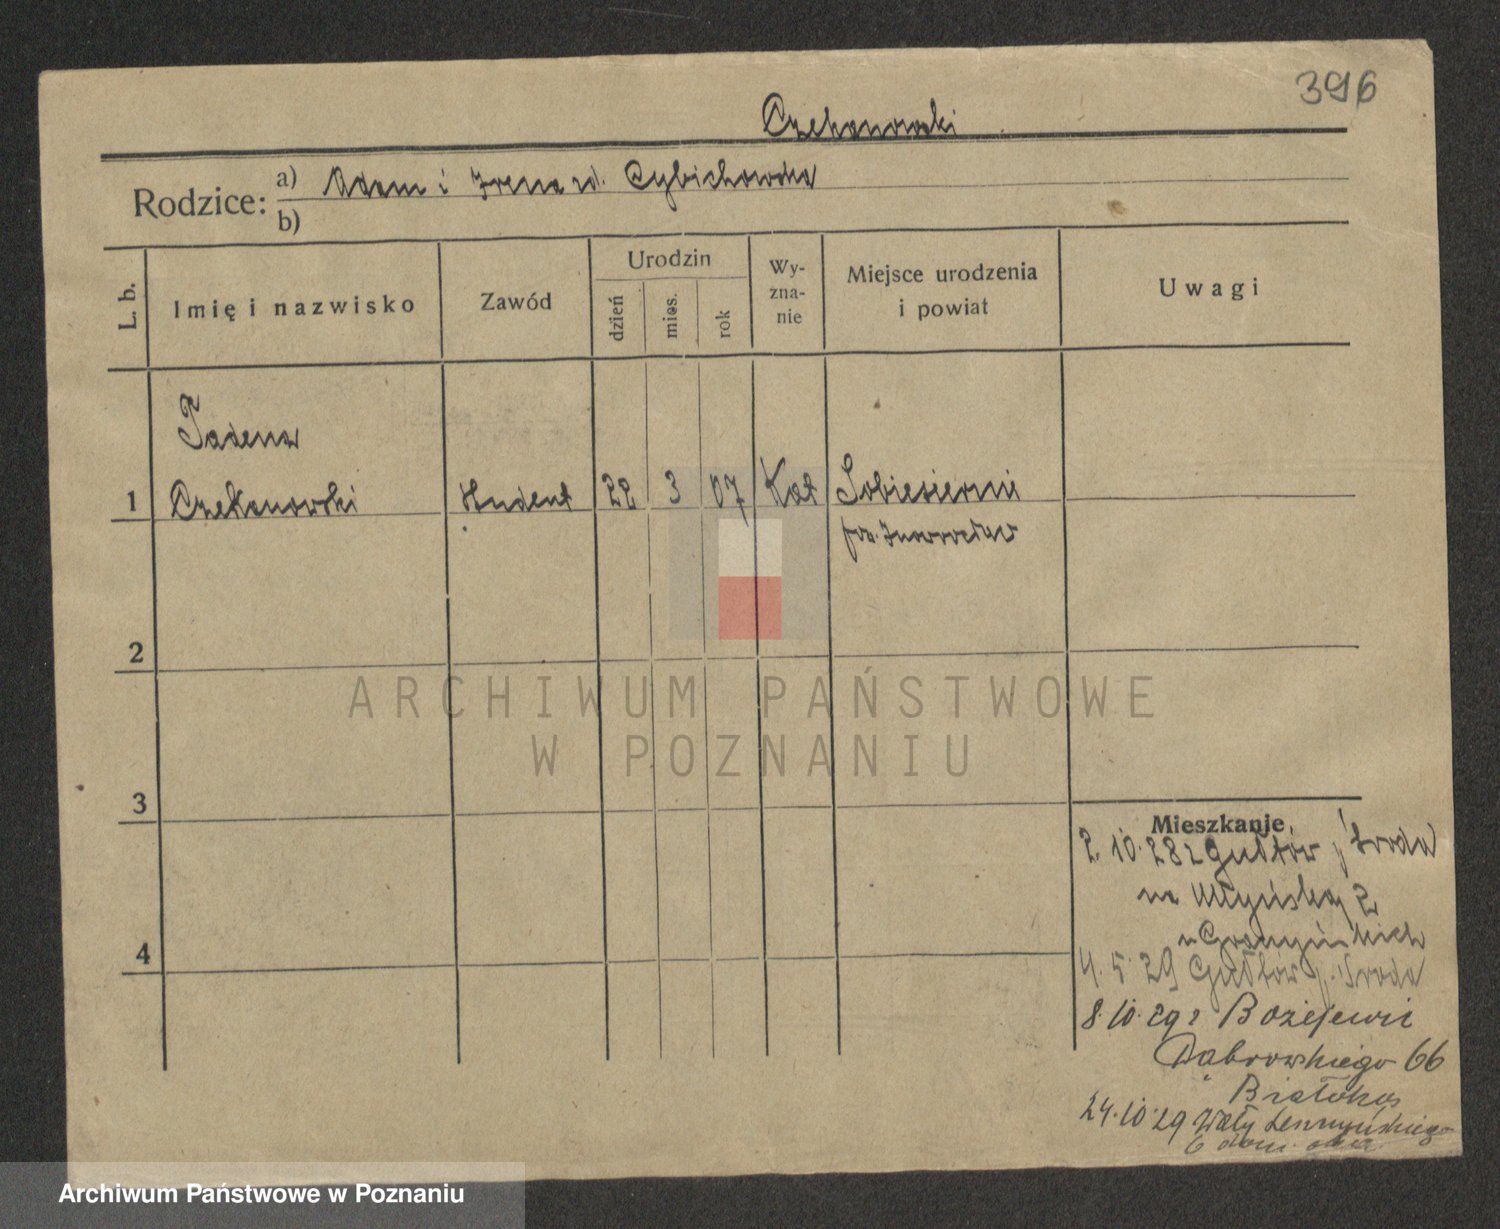 396
Czekanowski
Rodzice: a) Adam i Irena zd. Cybichowska
b)
L. b. Imię i nazwisko Zawód Urodzin dzień mies. rok Wyznanie Miejsce urodzenia i powiat Uwagi
Tadeusz
1 Czekanowski student 22 3 07 Kat Sobiesiernie
pow. Inowrocław
2
ARCHIWUM PAŃSTWOWE
W POZNANIU
3
Mieszkanie
2.10.28 z Gułtów p. Środa
na Młyńska 2
u
4
4.5.29 Gułtów p. Środa
8.10.29 z Bożejewic
Dąbrowskiego 66
Białokos
24.10.29 Wały Leszczyńskiego
6 dom. akad.
Archiwum Państwowe w Poznaniu